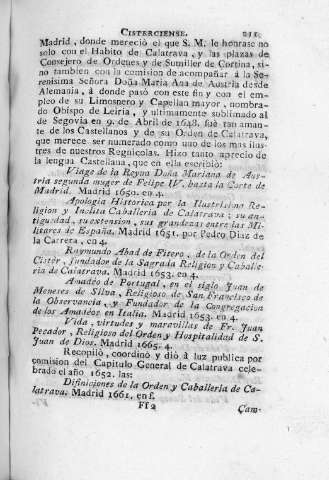 CISTERCIENSE. 211
Madrid, donde mereció el que S. M. le honrase no
solo con el Habito de Calatrava, y las plazas de
Consejero de Ordenes y de Sumiller de Cortina, si-
no tambien con la comision de acompañar á la Se-
renisima Señora Doña Maria Ana de Austria desde
Alemania, á donde pasó con este fin y con el em-
pleo de su Limosnero y Capellan mayor, nombra-
do Obispo de Leiria, y ultimamente sublimado al
de Segovia en 9. de Abril de 1648. fué tan aman-
te de los Castellanos y de su Orden de Calatrava,
que merece ser numerado como uno de los mas ilus-
tres de nuestros Regnicolas. Hizo tanto aprecio de
la lengua Castellana, que en ella escribió:
Viage de la Reyna Doña Mariana de Aus-
tria segunda muger de Felipe IV. hasta la Corte de
Madrid. Madrid 1650. en 4.
Apologia Historica por la Ilustrisima Re-
ligion y Inclita Caballeria de Calatrava; su an-
tiguedad, su extension, sus grandezas entre las Mi-
litares de España. Madrid 1651. por Pedro Diaz de
la Carrera, en 4.
Raymundo Abad de Fitero, de la Orden del
Cister, fundador de la Sagrada Religion y Caballe-
ria de Calatrava. Madrid 1653. en 4.
Amadéo de Portugal, en el siglo Juan de
Meneses de Silva, Religioso de San Francisco de
la Observancia, y Fundador de la Congregacion
de los Amadéos en Italia. Madrid 1653. en 4.
Vida, virtudes y maravillas de Fr. Juan
Pecador, Religioso del Orden y Hospitalidad de S.
Juan de Dios. Madrid 1665. 4.
Recopiló, coordinó y dió á luz publica por
comision del Capitulo General de Calatrava cele-
brado el año 1652. las:
Difiniciones de la Orden y Caballeria de Ca-
latrava. Madrid 1661. en f.
Ff 2 Cam-